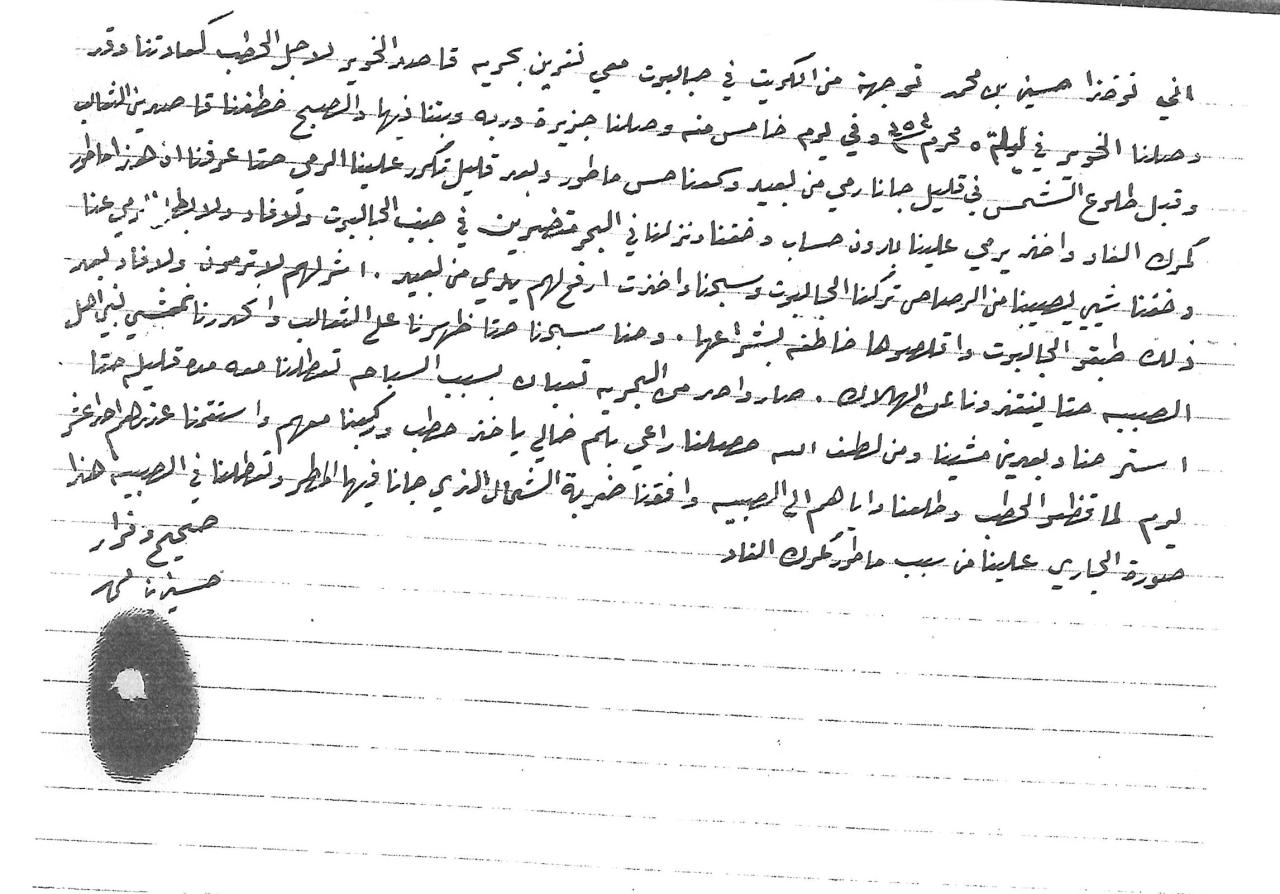 اني نوخذا حسين بن محمد توجهة من الكويت في جالبوت معي نفرين بحريه قاصد الخوير لاجل الحطب كعادتنا وقد
وصلنا الخوير في ليلة ٥ محرم ١٣٥٤ وفي يوم خامس منه وصلنا جزيرة وربه وبتنا فيها والصبح خطفنا قاصدين الثعالب
وقبل طلوع الشمس في قليل جانا رمي من بعيد وسمعنا حس ماطور وبعد قليل تكرر علينا الرمي حتا عرفنا ان هذا ماطور
كمرك الفاو واخذ يرمي علينا بدون حساب وخفنا ونزلنا في البحر في جنب الجالبوت ولا فاد ولا الرمي عنا
وخفنا شيي يصيبنا من الرصاص تركنا الجالبوت وسبحنا واخذت ارفع لهم يدي من بعيد . اشر لهم لا ترمون ولا فاد بعد
ذلك طبقو الجالبوت خاطفه بشراعها . وحنا سبحنا حتا ظهرنا على الثعالب نمشي نبي اهل
الصبيه حتا ينقذونا عن الهلاك . صار واحد من البحريه تعبان بسبب السباحه تعطلنا معه مده قليله حتا
استرحنا وبعدين مشينا ومن لطف الله حصلنا راعي بلم خالي ياخذ حطب وركبنا معهم واستقمنا عندهم احد عشر
يوم لما قظو الحطب وطلعنا واياهم الى الصبيه وافقنا ضربة الشمال الذي جانا فيها المطر وتعطلنا في الصبيه هذا
صورة الجاري علينا من سبب ماطور كمرك الفاو
صحيح وقرار
حسين بن محمد